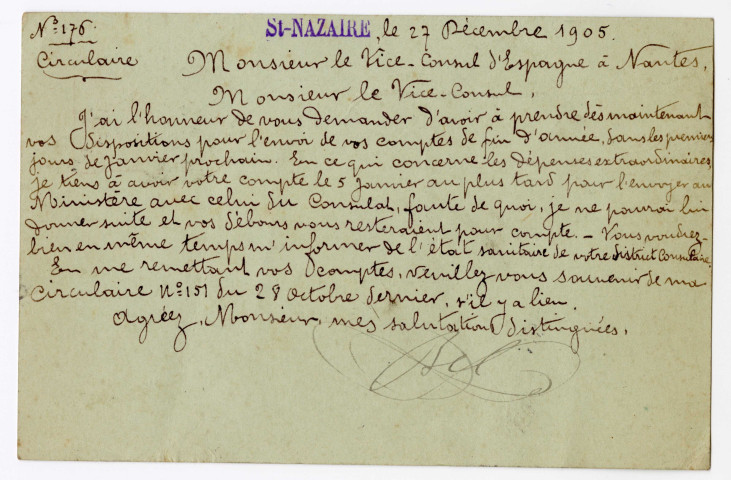 Nº 176. St-NAZAIRE, le 27 Décembre 1905.
Circulaire Monsieur le Vice-Consul d'Espagne à Nantes,
Monsieur le Vice-Consul,
J'ai l'honneur de vous demander d'avoir à prendre dès maintenant
vos dispositions pour l'envoi de vos comptes de fin d'année, dans les premiers
jours de Janvier prochain. En ce qui concerne les dépenses extraordinaires,
je tiens à avoir votre compte le 5 Janvier au plus tard pour l'envoyer au
Ministère avec celui du Consulat, faute de quoi, je ne pourrai lui
donner suite et vos débours vous resteraient pour compte. — Vous voudrez-
bien en même temps m'informer de l'état sanitaire de votre district Consulaire.
En me remettant vos comptes, veuillez vous souvenir de ma
circulaire nº 151 du 28 octobre dernier, s'il y a lieu.
Agréez, Monsieur, mes salutations distinguées.